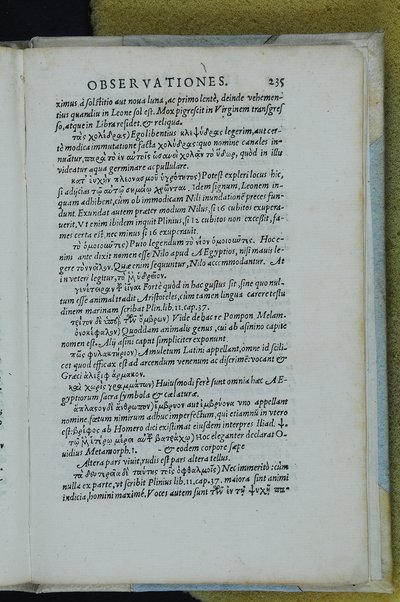 OBSERVATIONES. 235
ximus, à solstitio aut noua luna, ac primo lentè, deinde vehemen-
tius quandiu in Leone sol est. Mox pigrescit in Virginem transgres
so, atque in Libra residet. & reliqua.
τὰς χολίδρας) Ego libentius κλεψύδρας legerim, aut cer-
tè modica immutatione facta χολύδρας: quo nomine canales in-
nuātur, παρὰ τὸ ἐν αὐτοῖς ὡσανεὶ χολᾶν τὸ ὕδωρ, quòd in illis
videatur aqua germinare ac pullulare.
κατ᾽ εὐχὴν πλεονασμοῦ ὑγρότητος) Potest expleri locus hic,
si adijcias τῷ αὐτῷ σημείῳ χρῶνται. idem signum, Leonem in-
quam adhibent, cùm ob immodicam Nili inundationē preces fun-
dunt. Exundat autem præter modum Nilus, si 16 cubitos exupera-
uerit, Vt enim ibidem inquit Plinius, si 12 cubitos non excessit, fa-
mes certa est, nec minus si 16 exuperauit.
τὸ ὁμοιοῦτις) Puto legendum τὸ νέον ὁμοιοῦτις. Hoc e-
nim ante dixit nomen esse Nilo apud AEgyptios, nisi mauis le-
gere τὸν νεῖλον. Quæ enim sequuntur, Nilo accommodantur. At
in veteri legitur,
γινέται Fortè quòd in hac gustus sit, sine quo nul-
tum esse animal tradit Aristoteles, cùm tamen lingua carere testu
dinem marinam scribat Plin. lib. 11. cap. 37.
τρίτον δὲ ὄμβρων) Vide de hac re Pompon Melam.
ὀνοκέφαλον) Quoddam animalis genus, cui ab asinino capite
nomen est. Alij asini caput simpliciter exponunt.
πῶς φυλακτήριον) Amuletum Latini appellant, omne id scili-
cet quod efficax est ad arcendum venenum ac discrimē: vocant &
Græci ἀλεξιφάρμακον.
καὶ χωρὶς γραμμάτων) Huiusmodi ferè sunt omnia hæc AE-
gyptiorum sacra symbola & cælatura.
ἄπλασον δὲ ἄνθρωπον) ἔμβρυον aut ἐμβρύονα vno appellant
nomine fœtum nimirum adhuc imperfectum, qui etiamnū in vtero
est: βρέφος ab Homero dici existimat eiusdem interpres Iliad. ψ.
τῷ μὲν ἑτέρῳ μέρει αὐτοῦ βατράχῳ) Hoc eleganter declarat O-
uidius Metamorph. 1. - & eodem corpore sæpe
Altera pars viuit, rudis est pars altera tellus.
τὰ δευτερεῖα δὲ ταύτης τοῖς ὀφθαλμοῖς) Nec immeritò: cùm
nulla ex parte, vt scribit Plinius lib. 11. cap. 37. maiora sint animi
indicia, homini maximè. Voces autem sunt τῶν ἐν τῇ ψυχῇ πα-